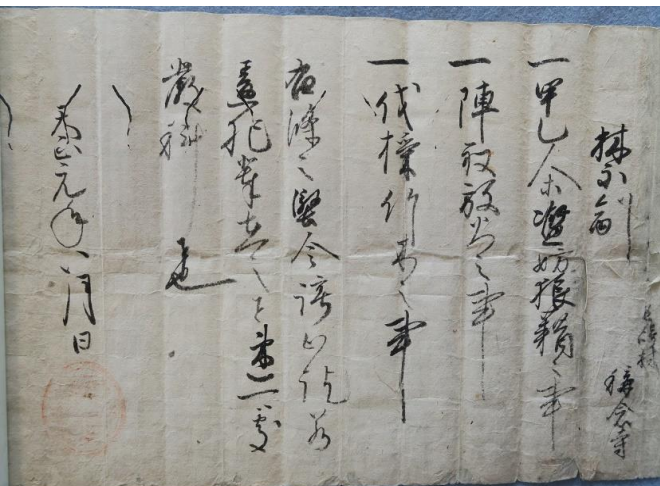 長崎村 称念寺
禁制
一甲乙人等濫妨狼藉之事
一陣取放火之事
一伐採竹木之事
右條々堅令停止訖若
違犯輩在之者速可處
嚴科者也
天正元年八月日